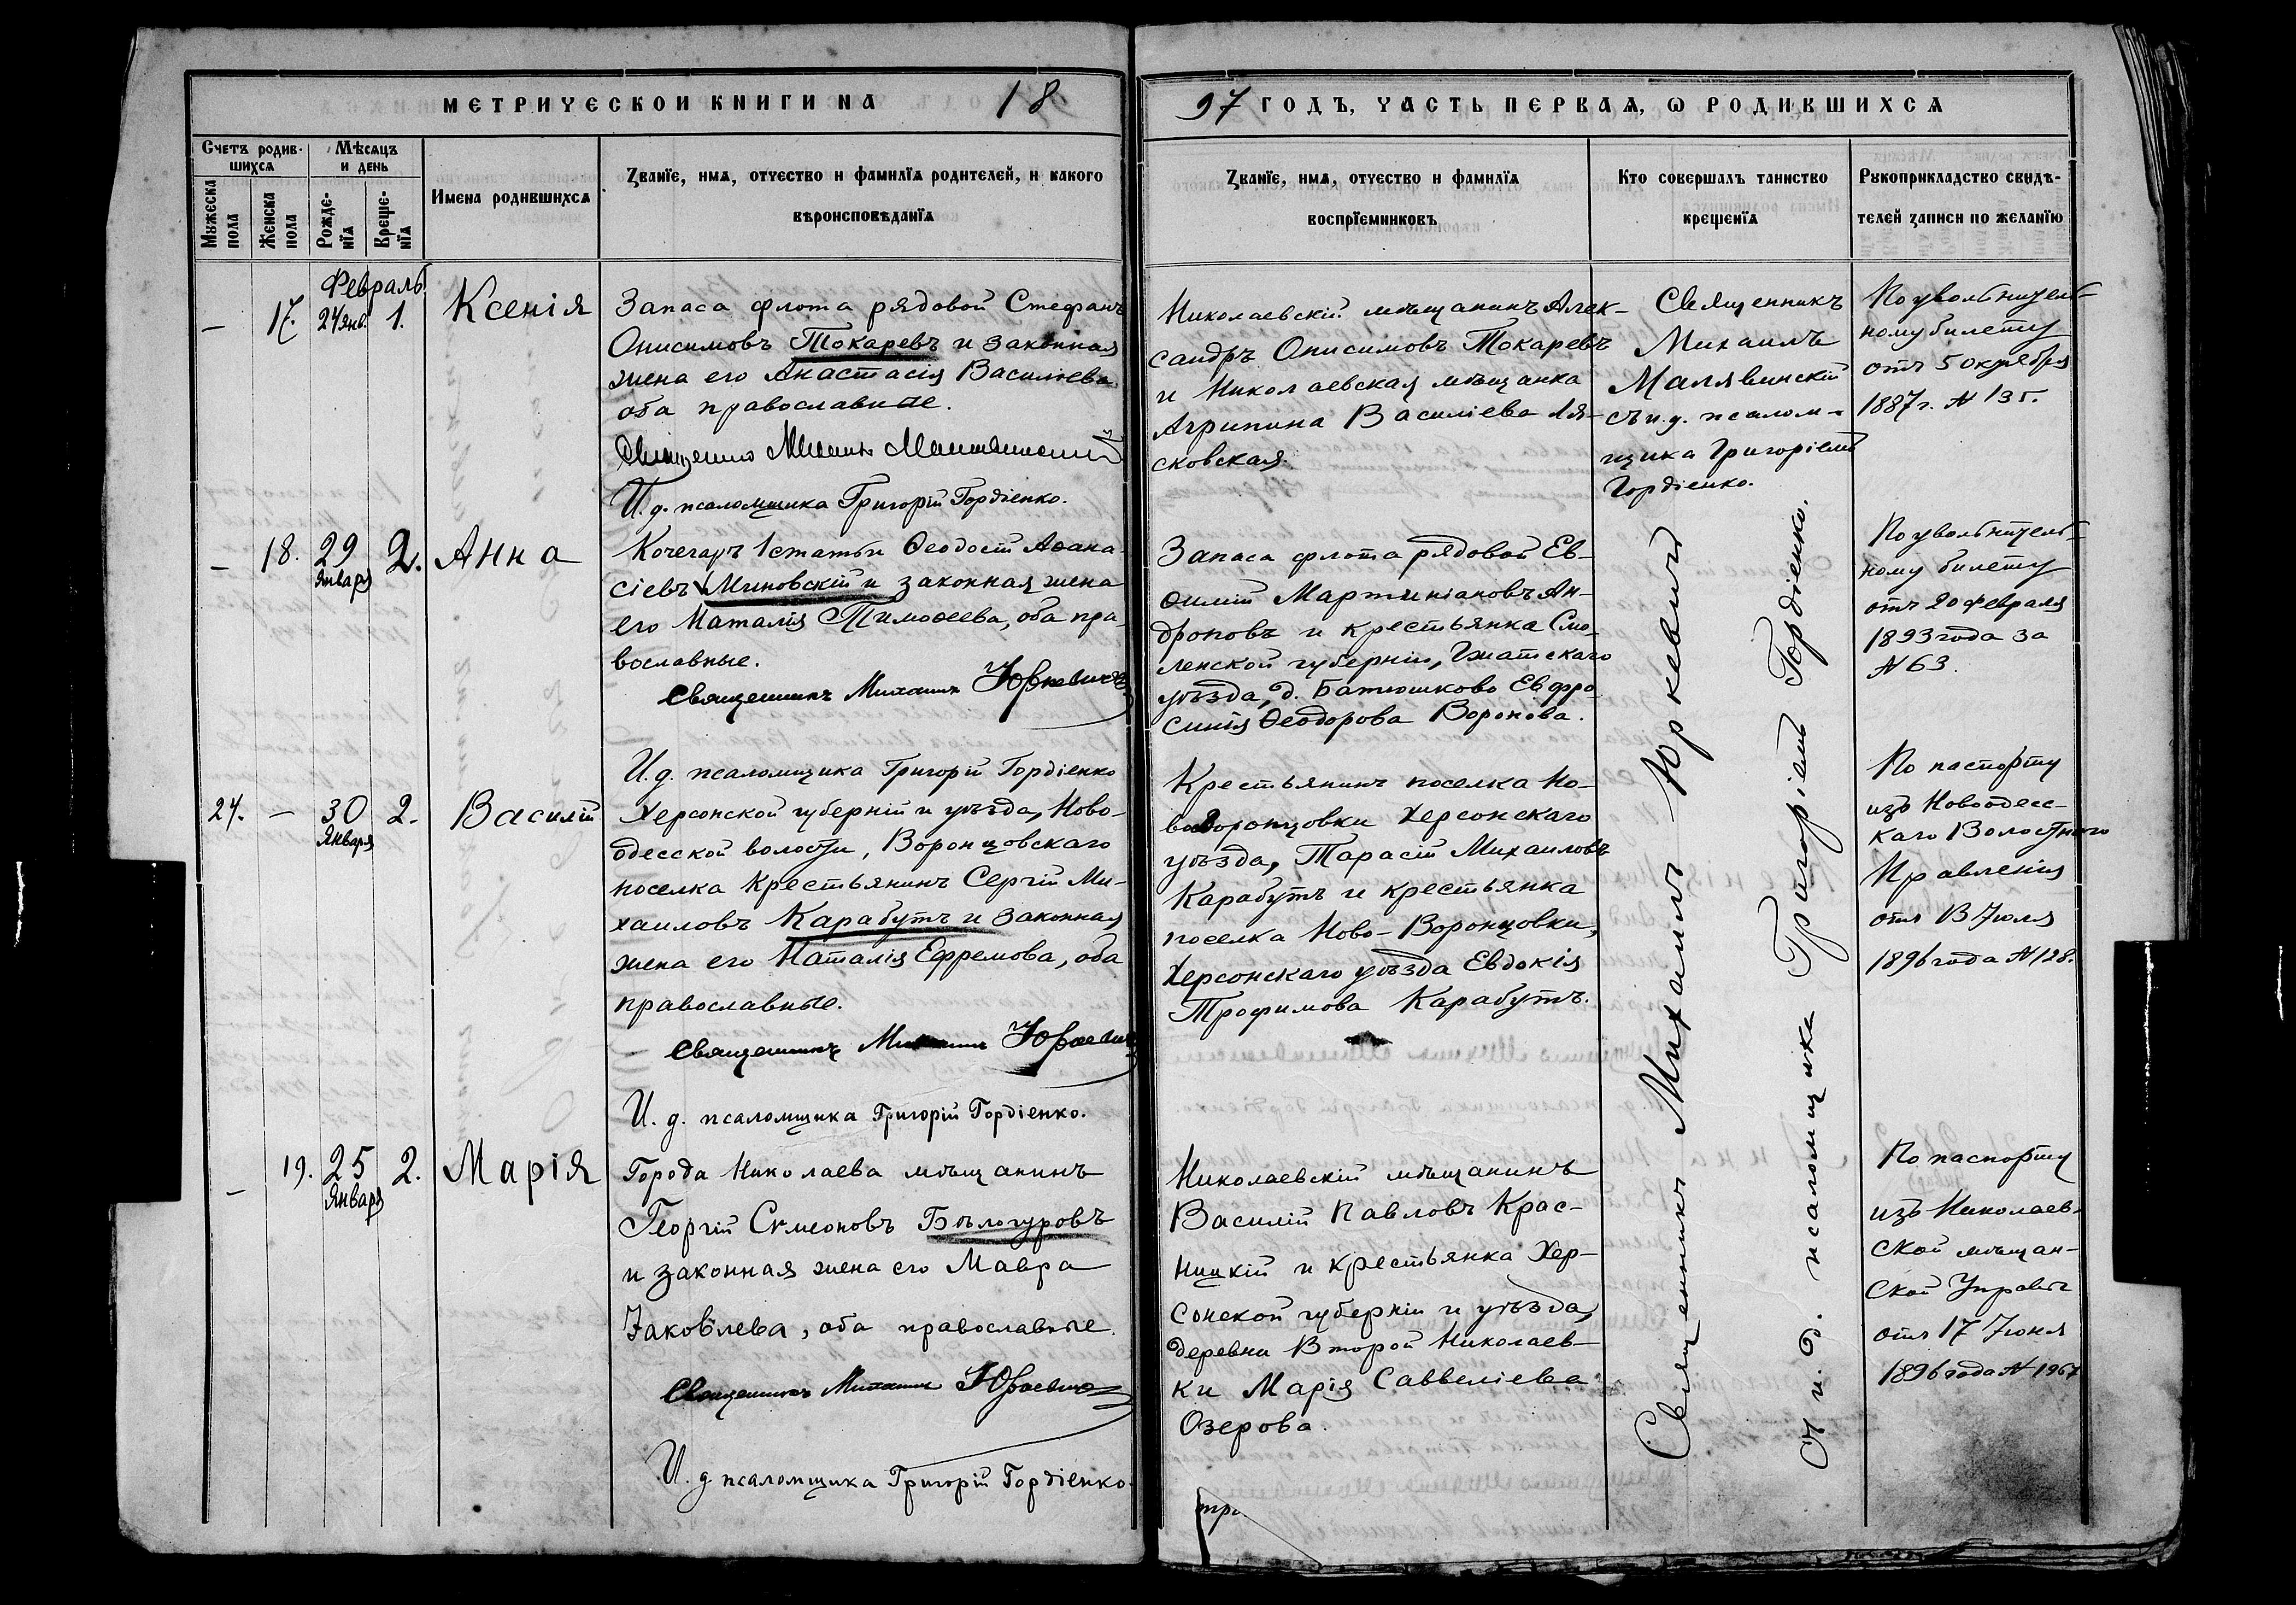 МЕТРИЧЕСКОЙ КНИГИ НА 18
97 ГОДЪ, ЧАСТЬ ПЕРВАЯ, Ѡ РОДИВШИХСЯ
Счетъ родив-
шихся
Мужеска
пола
Женска
пола
Мѣсяцъ
и день
Рожде-
нїя
Креще-
нїя
Имена родившихся
Званїе, имя, отчество и фамилїя родителей, и какого
вѣроисповѣданїя
Званїе, имя, отчество и фамилїя
воспрїемниковъ
Кто совершалъ таинство
крещенїя
Рукоприкладство свидѣ-
телей записи по желанїю
Февраль
– 17. 24 янв. 1. Ксенія
Запаса флота рядовой Стефанъ
Онисимовъ Токаревъ и законная
жена его Анастасія Василіева
оба православные.
Священникъ Михаилъ Малявинскій
И. д. псаломщика Григорій Гордіенко.
Николаевскій мѣщанинъ Алек-
сандръ Онисимовъ Токаревъ
и Николаевская мѣщанка
Агрипина Василіева Ля-
сковская.
Священникъ
Михаилъ
Малявинскій
съ и. д. псалом-
щика Григоріемъ
Гордіенко.
По увольнитель-
ному билету
отъ 5 октября
1887 г. №
– 18. 29 января 2. Анна
Кочегаръ 1 статьи Ѳеодосій Аѳана-
сіевъ Миновскій и законная жена
его Наталія Тимоѳеева, оба пра-
вославные.
Священникъ Михаилъ Юркевичъ
И. д. псаломщика Григорій Гордіенко
Запаса флота рядовой Ев-
ѳимій Мартиніановъ Ан-
дроповъ и крестьянка Смо-
ленской губерніи, Гжатскаго
уѣзда, д. Батюшково Евфро-
синія Ѳеодорова Воронова.
По увольнитель-
ному билету
отъ 20 февраля
1893 года за
№ 63.
24. – 30 января 2. Василій
Херсонской губерніи и уѣзда, Ново-
одесской волости, Воронцовскаго
поселка крестьянинъ Сергій Ми-
хаиловъ Карабутъ и законная
жена его Наталія Ефремова, оба
православные.
Священникъ Михаилъ Юркевичъ
И. д. псаломщика Григорій Гордіенко.
Крестьянинъ поселка Но-
воворонцовки Херсонскаго
уѣзда, Тарасій Михаиловъ
Карабутъ и крестьянка
поселка Ново-Воронцовки,
Херсонскаго уѣзда Евдокія
Трофимова Карабутъ.
По паспорту
изъ Новоодесс-
каго Волостного
Правленія
отъ 13 Іюля
1896 года № 128.
– 19. 25 января 2. Марія
Города Николаева мѣщанинъ
Георгій Сѵмеоновъ Бѣлогуровъ
и законная жена его Мавра
Іаковлева, оба православные.
Священникъ Михаилъ Юркевичъ
И. д. псаломщика Григорій Гордіенко.
Николаевскій мѣщанинъ
Василій Павловъ Крас-
ницкій и крестьянка Хер-
сонской губерніи и уѣзда,
деревни Второй Николаев-
ки Марія Саввеліева
Озерова.
Священникъ Михаилъ Юркевичъ
съ и. д. псаломщика Григоріемъ Гордіенко.
По паспорту
изъ Николаев-
ской мѣщан-
ской Управы
отъ 17 Іюня
1896 года № 1967